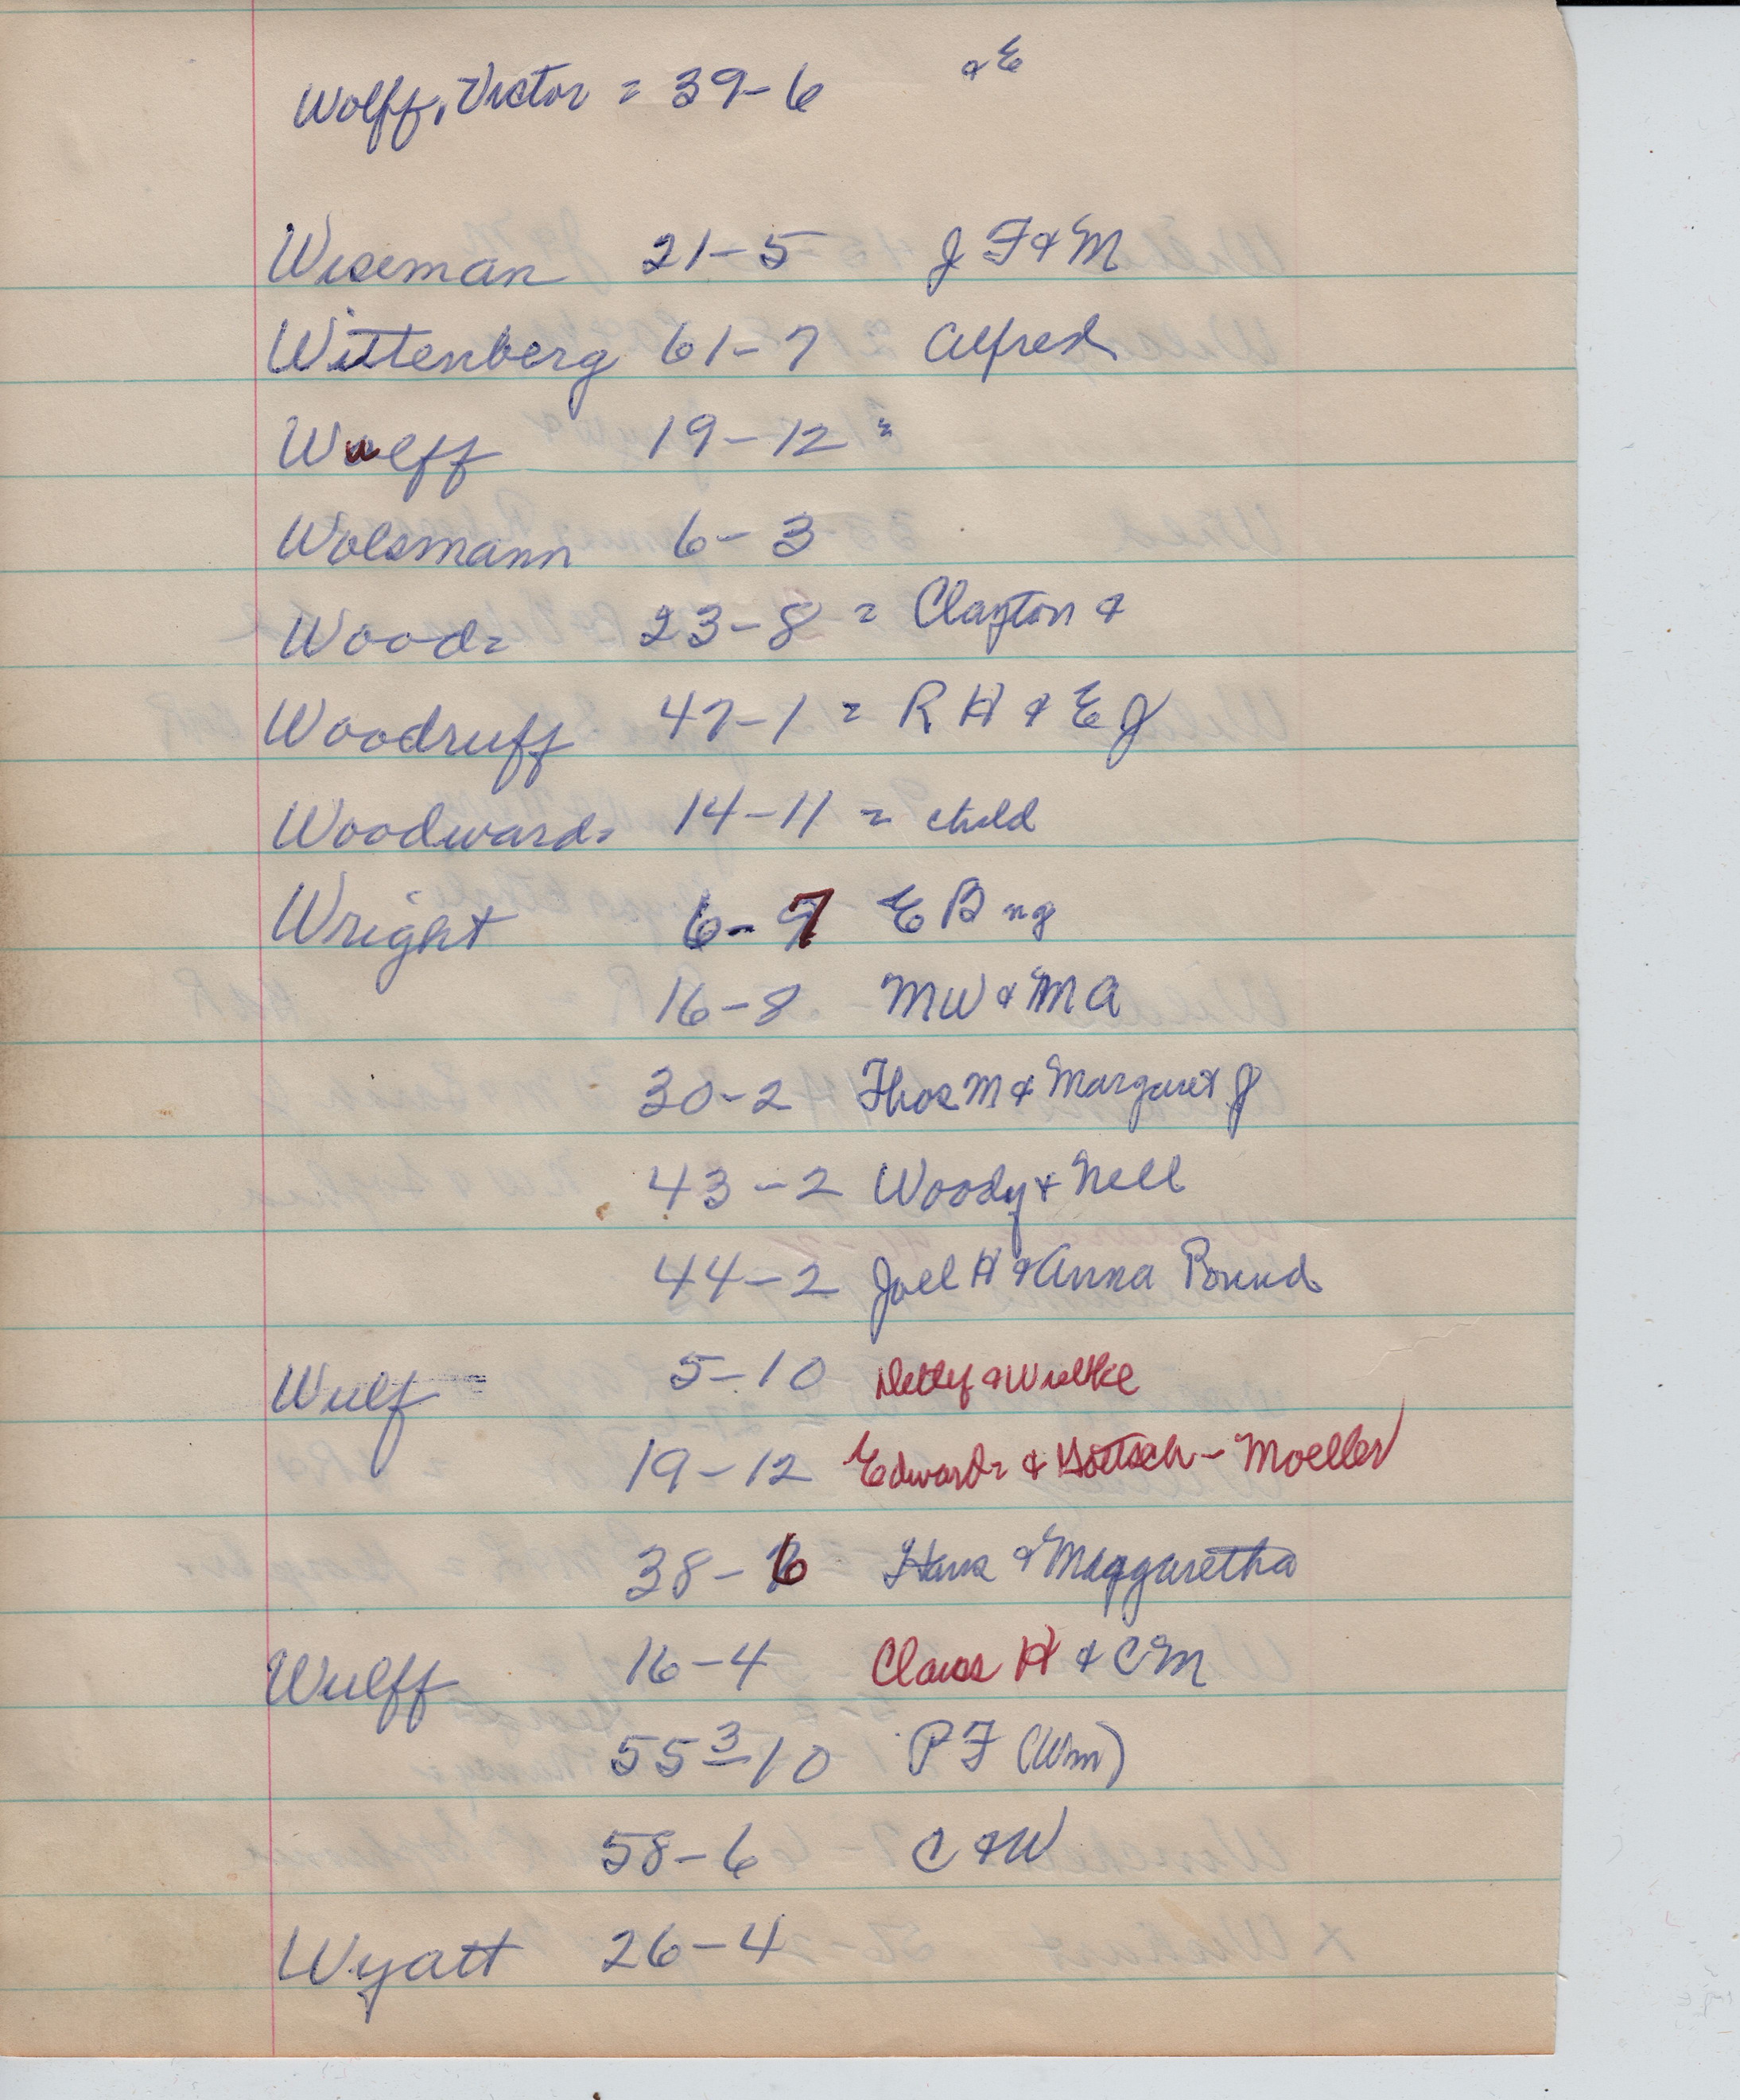 Wolff, Victor = 39-6 & E
Wiseman 21-5 J F & M
Wittenberg 61-7 Alfred
Wulff 19-12 =
Wolsmann 6-3
Wood = 23-8 = Clayton &
Woodruff 47-1 = R H & E J
Woodward = 14-11 = child
Wright 6-7 E B
16-8 MW & MA
30-2 Thos M & Margaret J
43-2 Woody & Nell
44-2 Joel H & Anna Pound
Wulf 5-10 Detlef & Wiebke
19-12 Edward = & Gottsch - Moeller
38-6 Hans & Maggaretha
Wulff 16-4 Claus H & CM
55 3-10 P F (Wm)
58-6 C & W
Wyatt 26-4